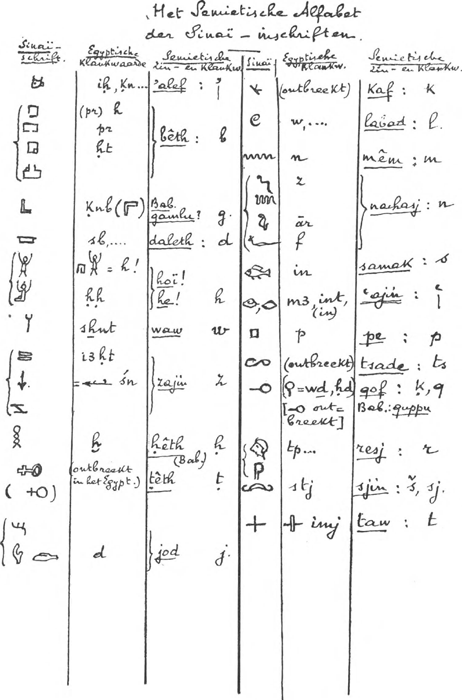 Het Semietische Alfabet
der Sinaï-inschriften.
Sinaï-schrift.
Egyptische Klankwaarde
Semietische zin- en Klankw.
ik, kn... 'alef :
(pr) h
pr
ḥt
bêth : b
Ḳnb
Bab. gamlu? g.
sb,.... daleth : d
= h!
ḥḥ
hoï!
he! h
shnt waw w
i3ḫt
= śn
zajin z
ḫ ḥêth ḥ
(Bab.)
(outbreekt in het Egypt.) ṭêth ṭ
( +O)
d jod j.
Sinaï
Egyptische Klankw.
Semietische zin- en Klankw.
(outbreekt) kaf : k
w,.... labad : l.
n mêm : m
z
är
f
nachasj : n
in samak : s
m3, int, (in) 'ajin :
p pe : p
(outbreekt) tsade : ts
(=wd, ḥd) qof : ḳ, q
[ out=breekt] Bab.: quppu
tp... resj : r
stj sjin : š, sj.
imj taw : t